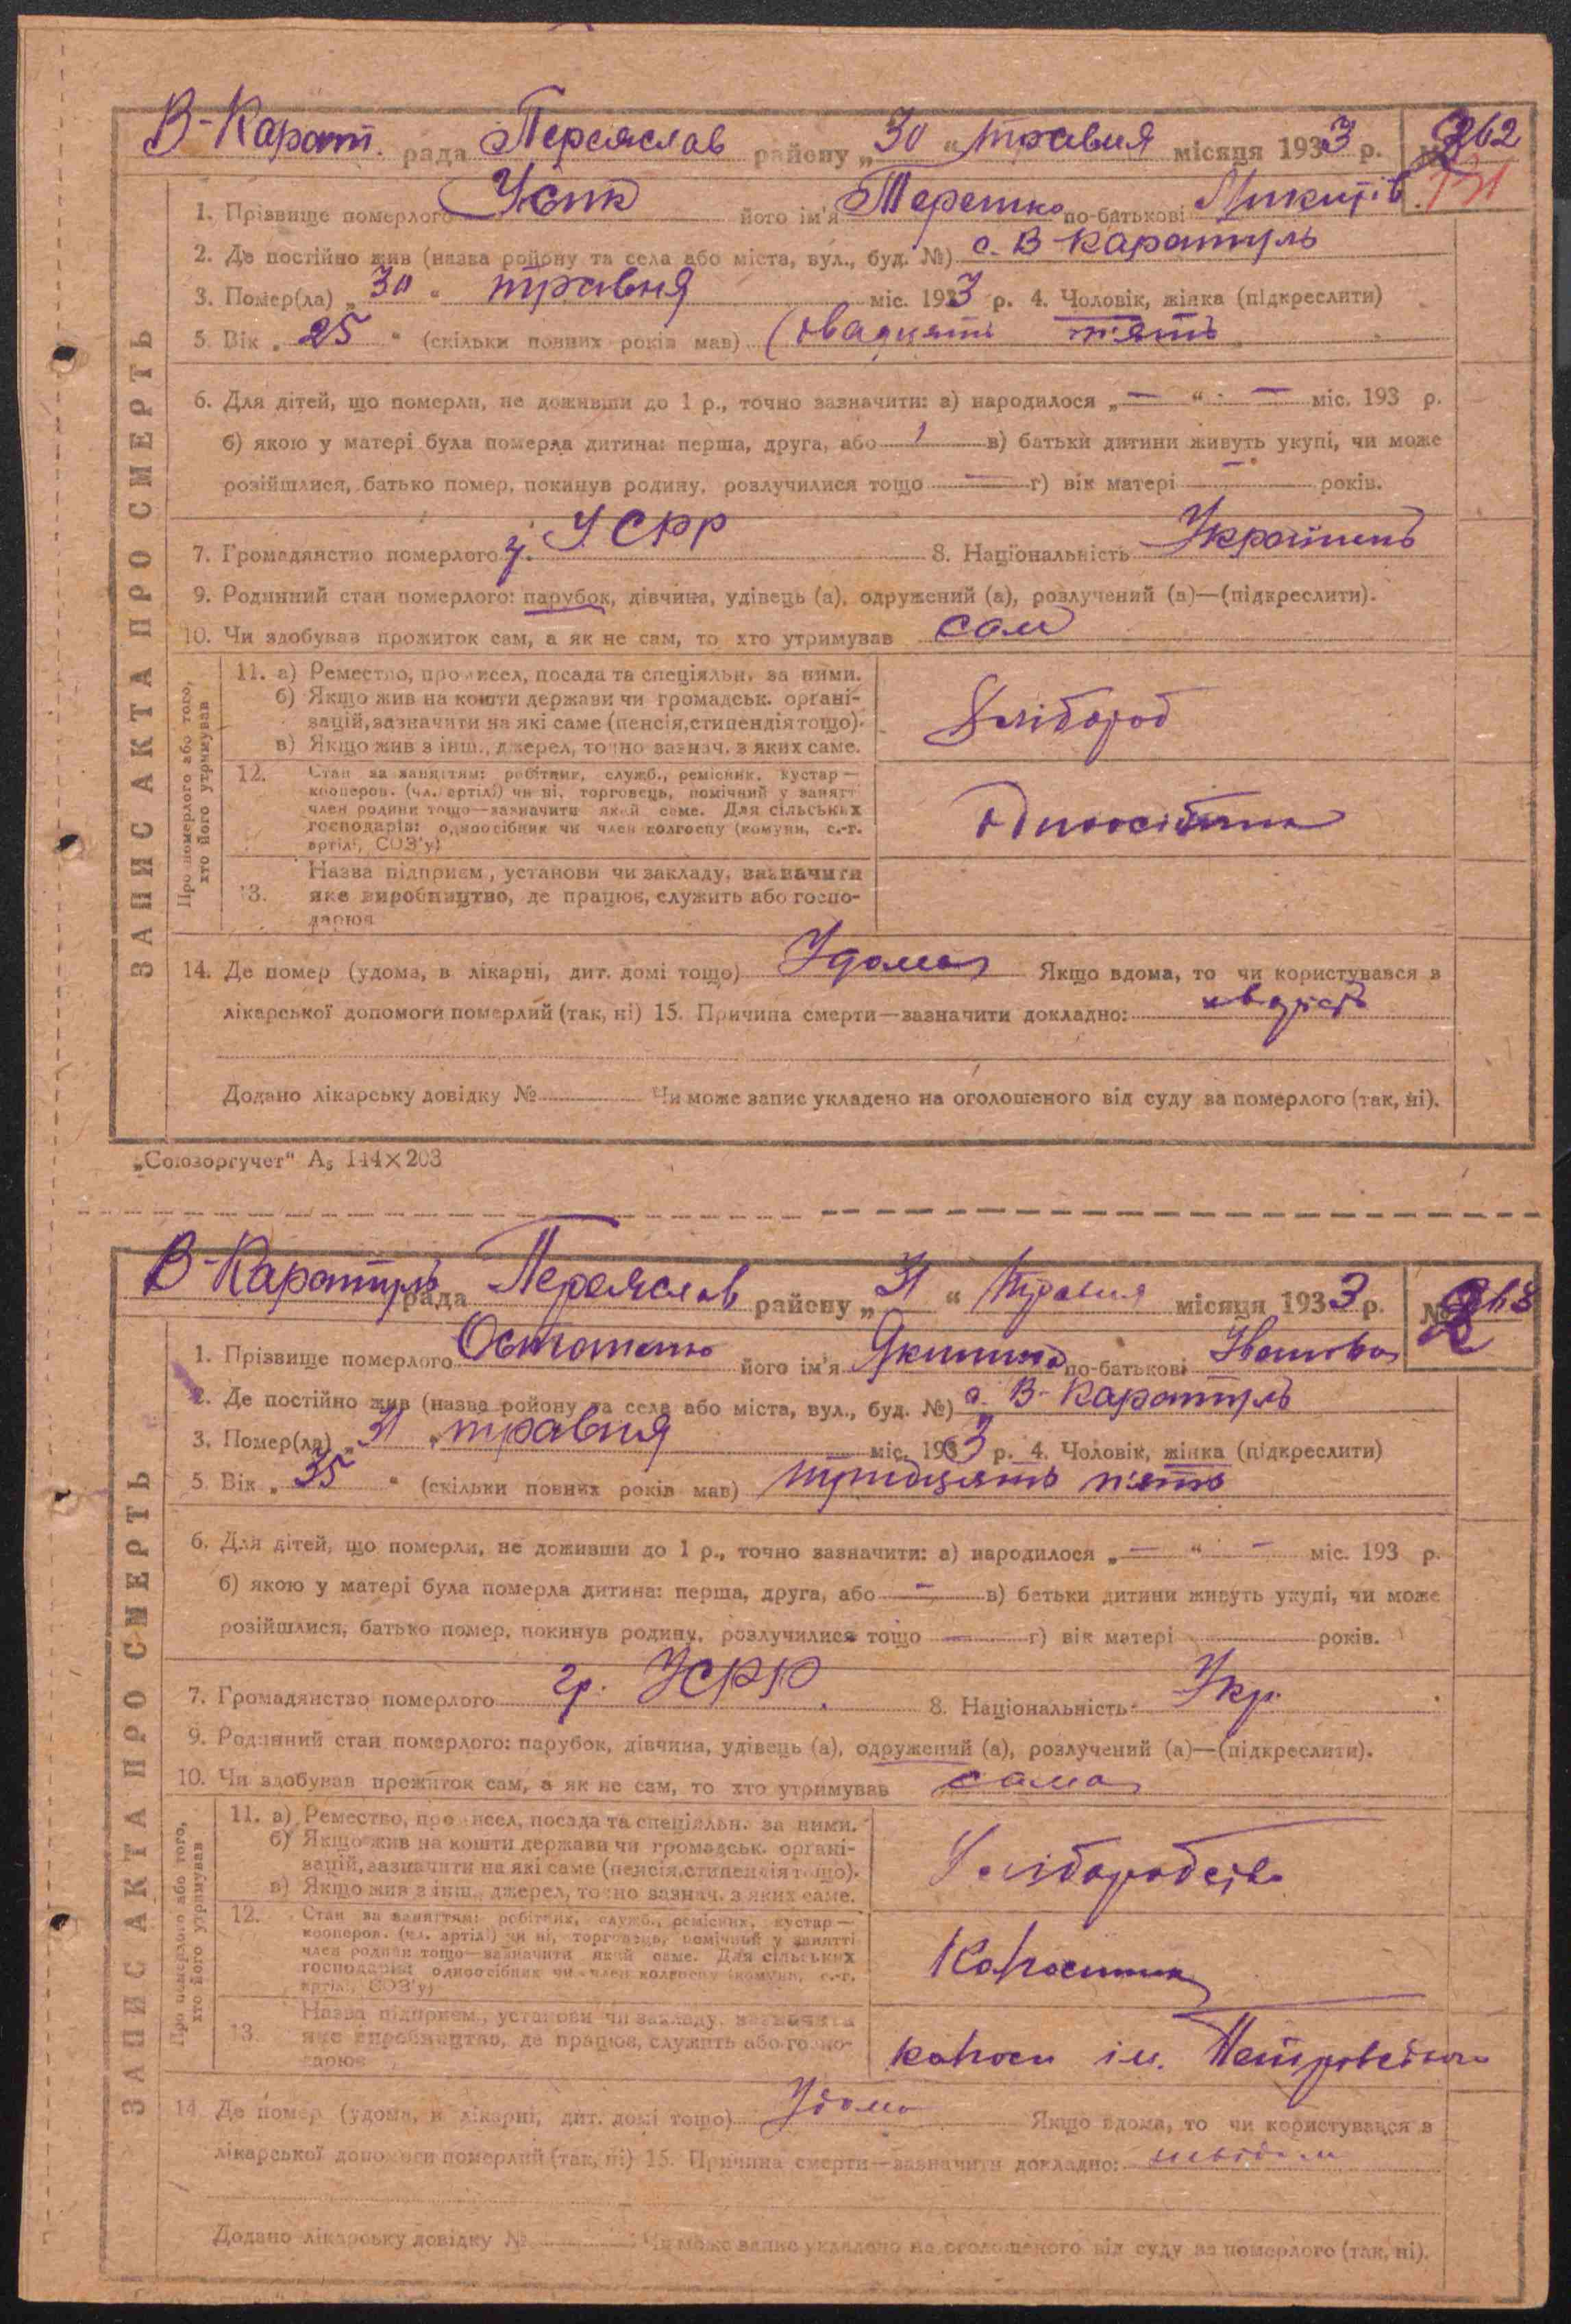 В-Карат. рада Переяслав району „30“ травня місяця 1933 р. № 262
131
1. Прізвище померлого Усик його ім'я Терешко по-батькові Микитів
2. Де постійно жив (назва ройону та села або міста, вул., буд. №) с. В Каратуль
3. Помер(ла) „30“ травня міс. 1933 р. 4. Чоловік, жінка (підкреслити)
5. Вік „25“ (скільки повних років мав) (двадцять п'ять
6. Для дітей, що померли, не доживши до 1 р., точно зазначити: а) народилося „—“ — міс. 193 р.
б) якою у матері була померла дитина: перша, друга, або в) батьки дитини живуть укупі, чи може
розійшлися, батько помер, покинув родину, розлучилися тощо — г) вік матері — років.
7. Громадянство померлого гр. УСРР 8. Національність Українець
9. Родинний стан померлого: парубок, дівчина, удівець (а), одружений (а), розлучений (а)—(підкреслити).
10. Чи здобував прожиток сам, а як не сам, то хто утримував сам
ЗАПИС АКТА ПРО СМЕРТЬ
Про померлого або того, хто його утримував
11. а) Ремество, промисел, посада та спеціяльн. за ними.
б) Якщо жив на кошти держави чи громадськ. органі-
зацій, зазначити на які саме (пенсія, стипендія тощо).
в) Якщо жив з інш., джерел, точно зазнач. з яких саме.
Хлібороб
12. Стан за заняттям: робітник, служб., ремісник, кустар—
кооперов. (чл. артілі) чи ні, торговець, помічний у занятті
член родини тощо—зазначити який саме. Для сільських
господарів: одноосібник чи член колгоспу (комуни, с.-г.
артілі, СОЗ'у)
Одноосібник
13. Назва підприєм., установи чи закладу, зазначити
яке виробництво, де працює, служить або госпо-
дарює
14. Де помер (удома, в лікарні, дит. домі тощо) Удома Якщо вдома, то чи користувався з
лікарської допомоги померлий (так, ні) 15. Причина смерти—зазначити докладно:
Додано лікарську довідку № Чи може запис укладено на оголошеного від суду за померлого (так, ні).
„Союзоргучет“ А₅ 144×203
В-Каратуль рада Переяслав району „31“ травня місяця 1933 р. № 263
1. Прізвище померлого його ім'я по-батькові Іванівна
2. Де постійно жив (назва ройону та села або міста, вул., буд. №) с. В-Каратуль
3. Помер(ла) „31“ травня міс. 1933 р. 4. Чоловік, жінка (підкреслити)
5. Вік „35“ (скільки повних років мав) тридцять п'ять
6. Для дітей, що померли, не доживши до 1 р., точно зазначити: а) народилося „—“ — міс. 193 р.
б) якою у матері була померла дитина: перша, друга, або — в) батьки дитини живуть укупі, чи може
розійшлися, батько помер, покинув родину, розлучилися тощо — г) вік матері років.
7. Громадянство померлого гр. УСРР. 8. Національність Укр.
9. Родинний стан померлого: парубок, дівчина, удівець (а), одружений (а), розлучений (а)—(підкреслити).
10. Чи здобував прожиток сам, а як не сам, то хто утримував сама
ЗАПИС АКТА ПРО СМЕРТЬ
Про померлого або того, хто його утримував
11. а) Ремество, промисел, посада та спеціяльн. за ними.
б) Якщо жив на кошти держави чи громадськ. органі-
зацій, зазначити на які саме (пенсія, стипендія тощо).
в) Якщо жив з інш., джерел, точно зазнач. з яких саме.
Хліборобство
12. Стан за заняттям: робітник, служб., ремісник, кустар—
кооперов. (чл. артілі) чи ні, торговець, помічний у занятті
член родини тощо—зазначити який саме. Для сільських
господарів: одноосібник чи член колгоспу (комуни, с.-г.
артілі, СОЗ'у)
13. Назва підприєм., установи чи закладу, зазначити
яке виробництво, де працює, служить або госпо-
дарює
колгосп ім. Петровського
14. Де помер (удома, в лікарні, дит. домі тощо) Удома Якщо вдома, то чи користувався з
лікарської допомоги померлий (так, ні) 15. Причина смерти—зазначити докладно: невідома
Додано лікарську довідку № Чи може запис укладено на оголошеного від суду за померлого (так, ні).